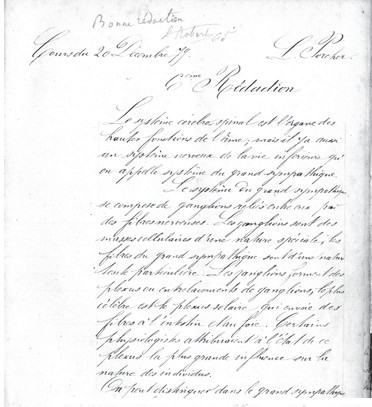 Bonne rédaction
Cours du 20 Décembre 79. L. Porcher
Rédaction
Le système cérébro-spinal est l'organe des
hautes fonctions de l'âme; mais il y a aussi
un système nerveux de la vie inférieure qu'
on appelle système du grand sympathique.
Le système du grand sympathique
se compose de ganglions reliés entre eux par
des fibres nerveuses. Les ganglions sont des
masses cellulaires d'une nature spéciale, les
fibres du grand sympathique sont d'une nature
toute particulière. Les ganglions forment des
plexus ou entrelacements de ganglions; le plus
célèbre est le plexus solaire, qui envoie des
fibres à l'intestin et au foie. Certains
physiologistes attribuaient à l'état de ce
plexus la plus grande influence sur la
nature des individus.
On peut distinguer dans le grand sympathique